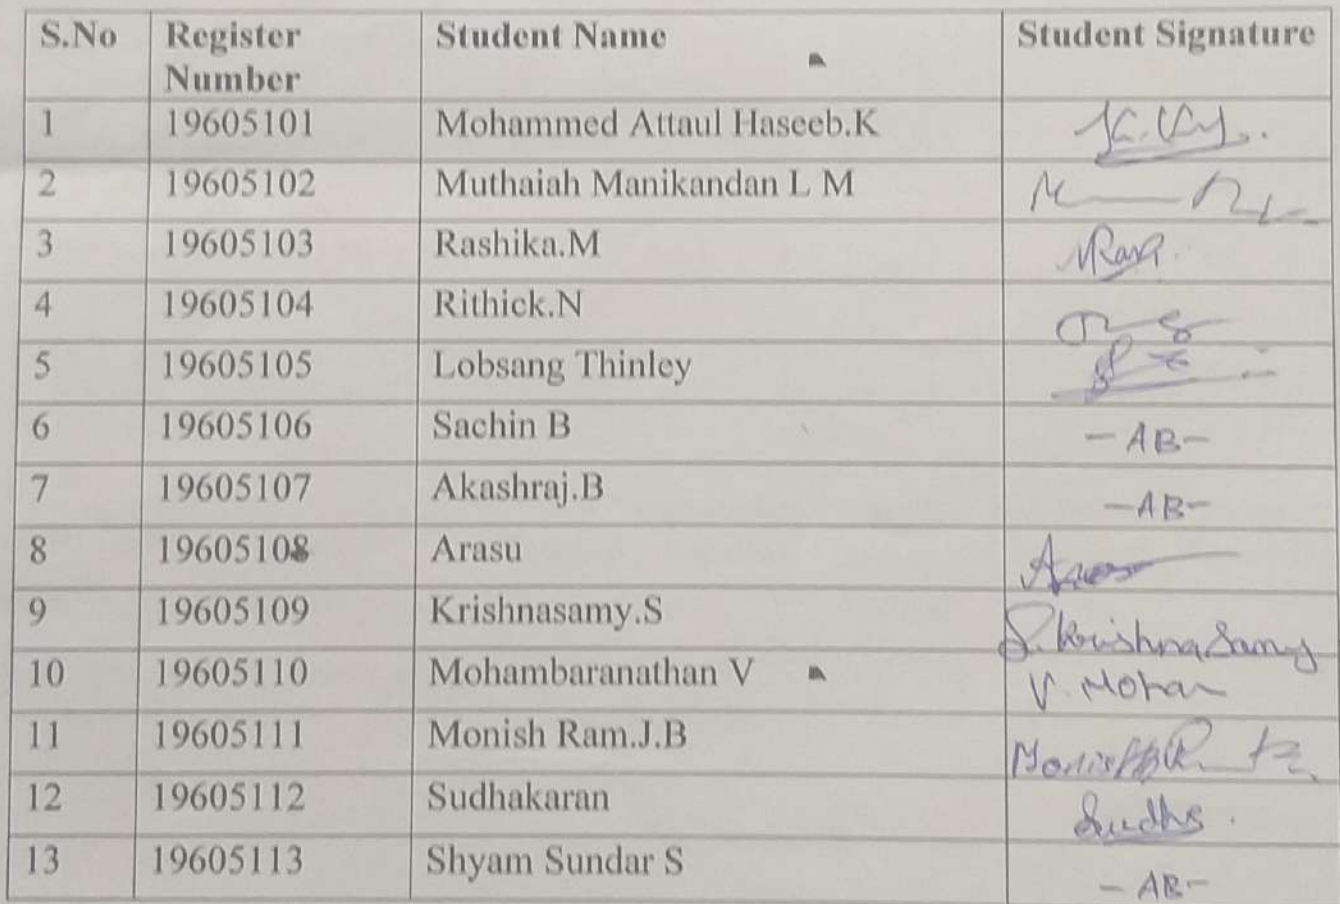 S.No Register Number Student Name Student Signature
1 19605101 Mohammed Attaul Haseeb.K
2 19605102 Muthaiah Manikandan L M
3 19605103 Rashika.M
4 19605104 Rithick.N
5 19605105 Lobsang Thinley
6 19605106 Sachin B - AB -
7 19605107 Akashraj.B - AB -
8 19605108 Arasu
9 19605109 Krishnasamy.S S. KrishnaSamy
10 19605110 Mohambaranathan V V. Mohan
11 19605111 Monish Ram.J.B
12 19605112 Sudhakaran
13 19605113 Shyam Sundar S - AB -